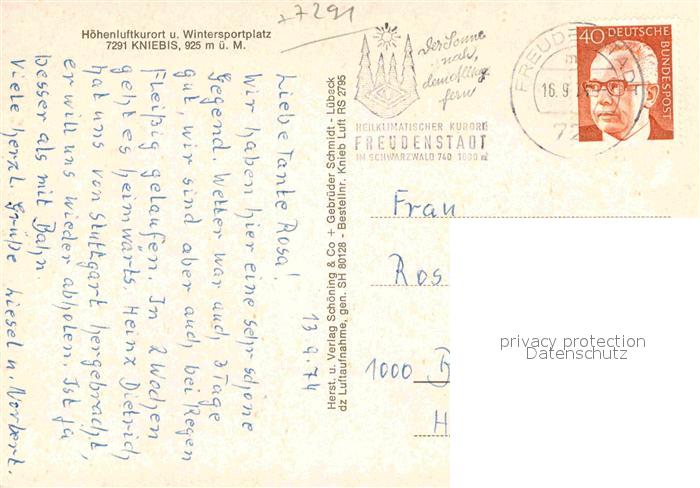 +7291
Höhenluftkurort u. Wintersportplatz
7291 KNIEBIS, 925 m ü. M.
13.9.74
Liebe Tante Rosa!
Wir haben hier eine sehr schöne
Gegend. Wetter war auch 3 Tage
gut, wir sind aber auch bei Regen
fleißig gelaufen. In 2 Wochen
geht es heimwärts. Heinz Dietrich
hat uns von Stuttgart hergebracht,
er will uns wieder abholen. Ist ja
besser als mit Bahn.
Viele herzl. Grüße Liesel u. Norbert.
Herst. u. Verlag Schöning & Co + Gebrüder Schmidt - Lübeck
dz Luftaufnahme, gen. SH 80128 - Bestellnr. Knieb Luft RS 2795
Der Sonne
nach,
dem Alltag
fern
HEILKLIMATISCHER KURORT
FREUDENSTADT
IM SCHWARZWALD 740 1000 m
FREUDENSTADT
16.9.
72
40 DEUTSCHE
BUNDESPOST
Frau
Ros
1000 B
H
privacy protection
Datenschutz